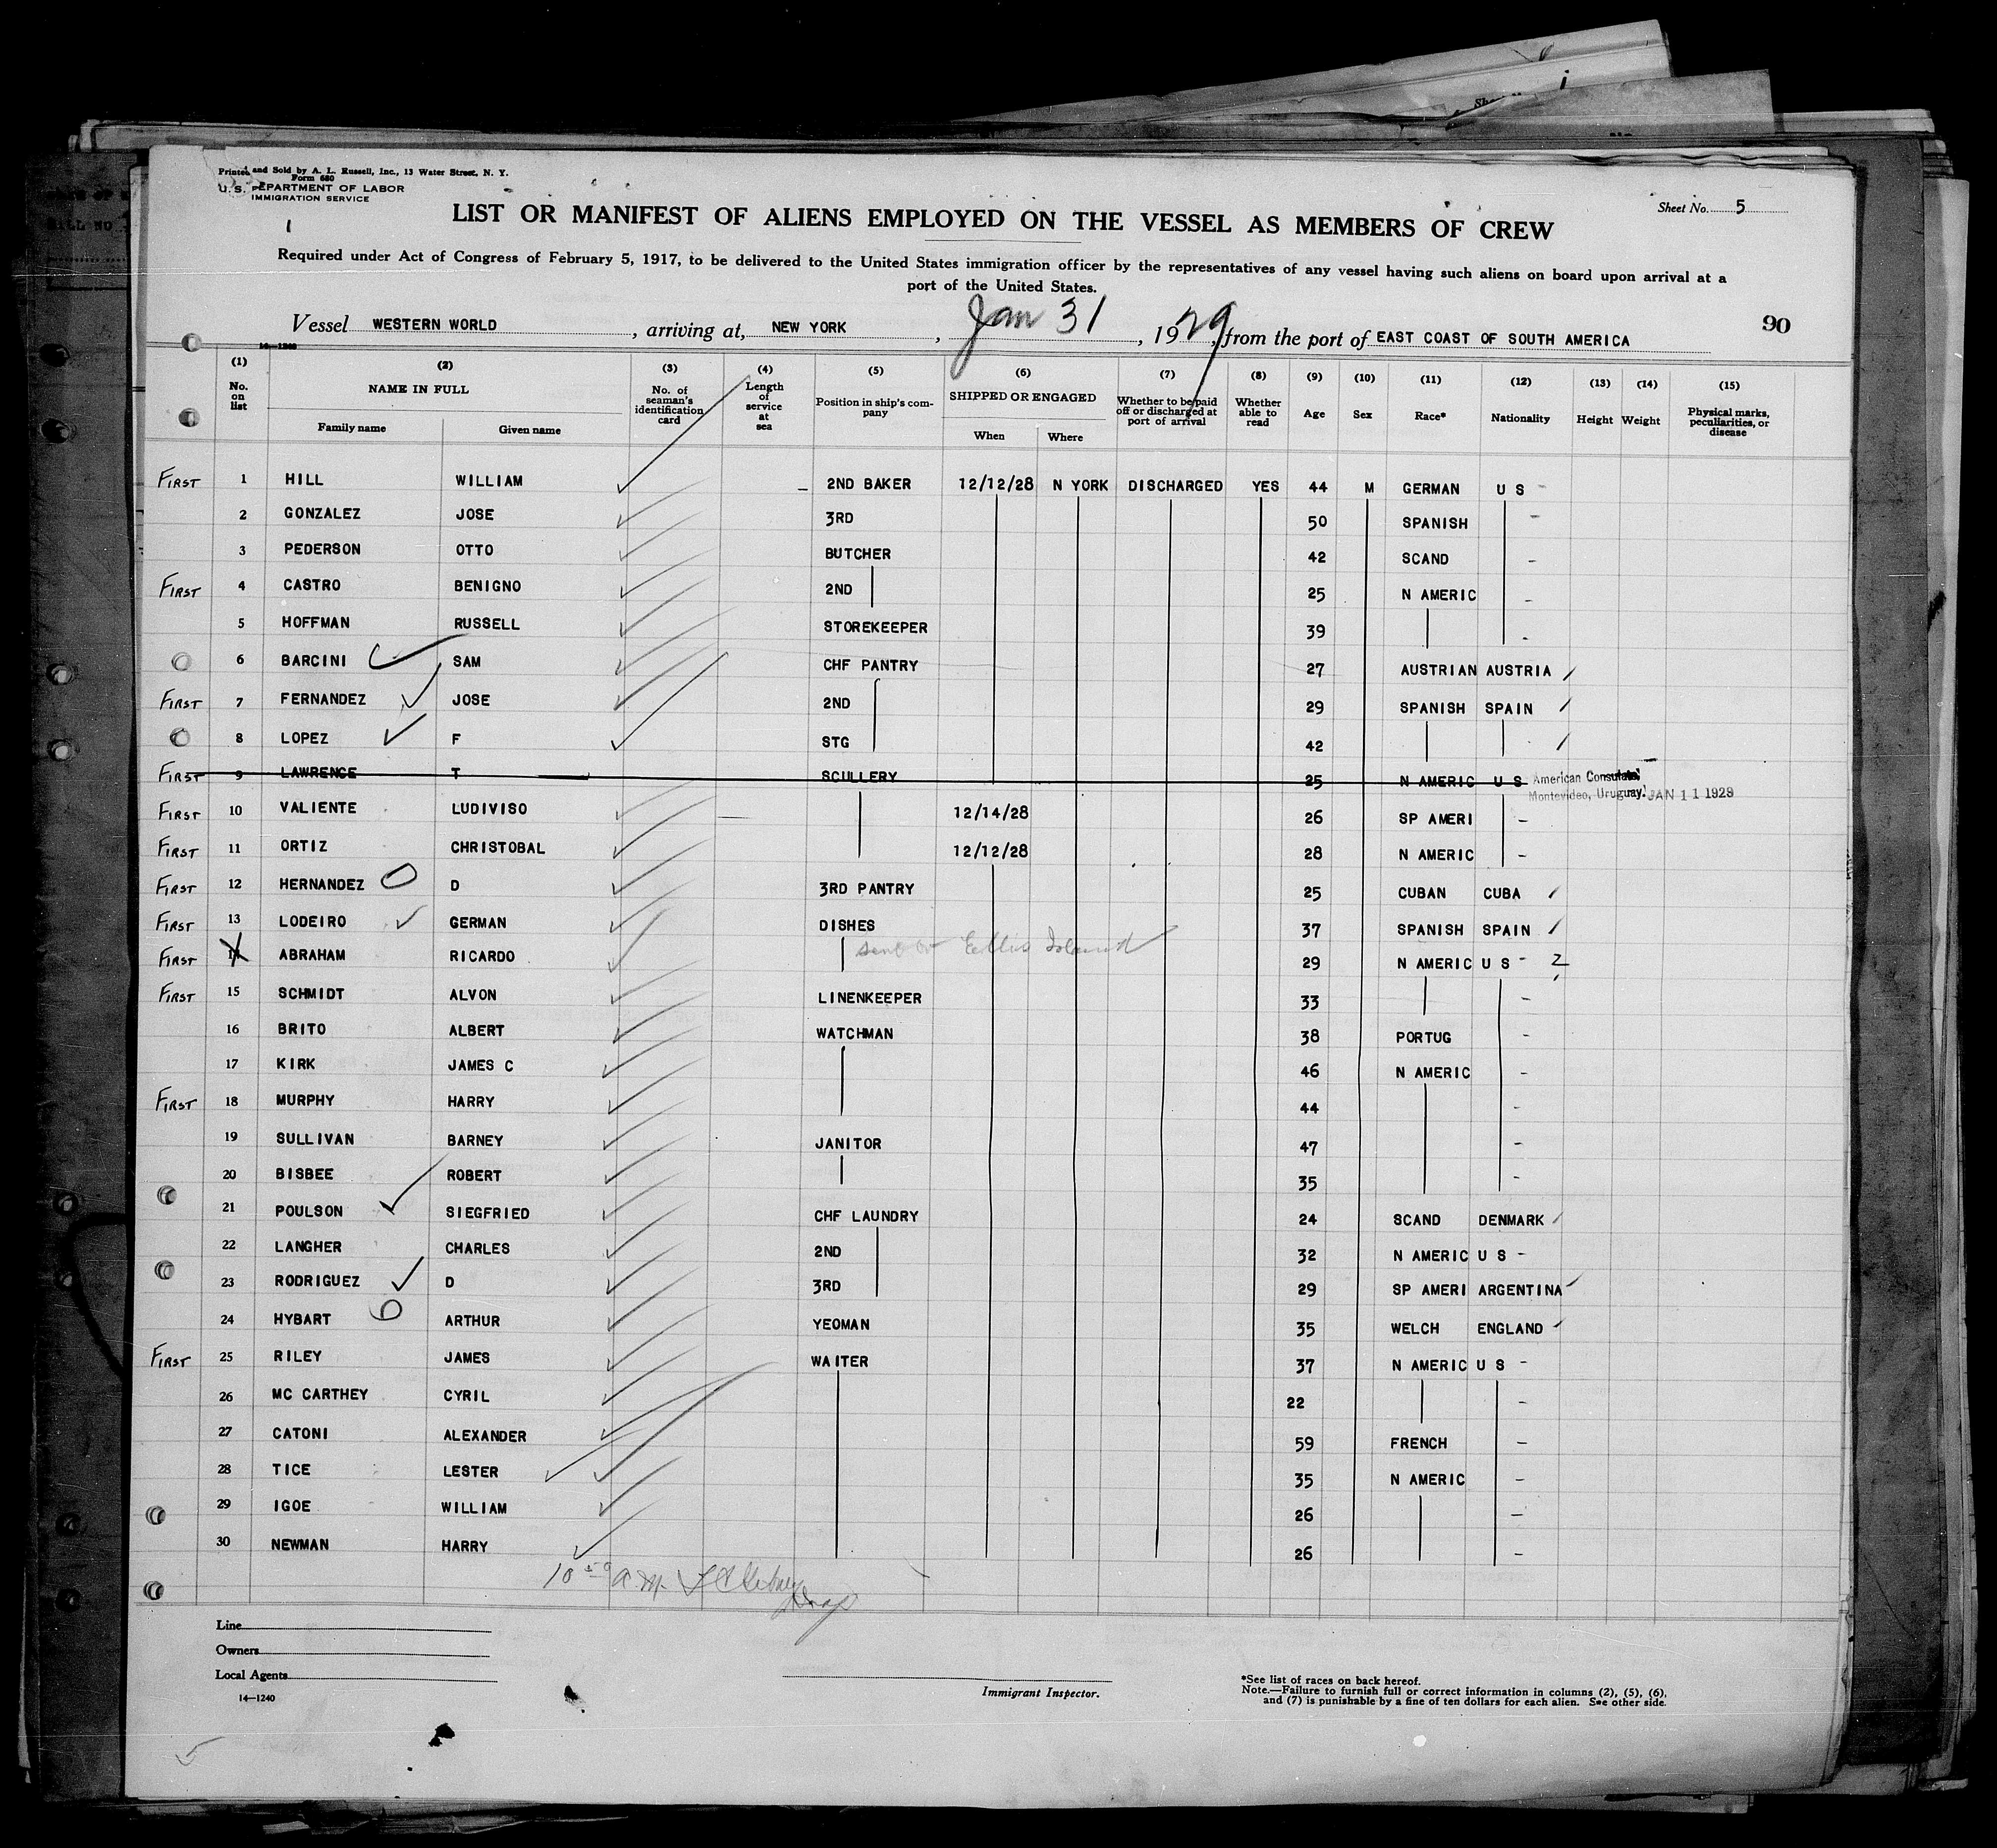 Printed and Sold by A. L. Russell, Inc., 13 Water Street, N. Y.
Form 680
U.S. DEPARTMENT OF LABOR
IMMIGRATION SERVICE
1
Sheet No. 5
LIST OR MANIFEST OF ALIENS EMPLOYED ON THE VESSEL AS MEMBERS OF CREW
Required under Act of Congress of February 5, 1917, to be delivered to the United States immigration officer by the representatives of any vessel having such aliens on board upon arrival at a
port of the United States.
Vessel WESTERN WORLD, arriving at, NEW YORK, Jan 31, 1929, from the port of EAST COAST OF SOUTH AMERICA
90
14—1240
(1) No. on list (2) NAME IN FULL Family name Given name (3) No. of seaman's identification card (4) Length of service at sea (5) Position in ship's company (6) SHIPPED OR ENGAGED When Where (7) Whether to be paid off or discharged at port of arrival (8) Whether able to read (9) Age (10) Sex (11) Race* (12) Nationality (13) Height (14) Weight (15) Physical marks, peculiarities, or disease
FIRST 1 HILL WILLIAM – 2ND BAKER 12/12/28 N YORK DISCHARGED YES 44 M GERMAN U S -
2 GONZALEZ JOSE 3RD 50 SPANISH -
3 PEDERSON OTTO BUTCHER 42 SCAND -
FIRST 4 CASTRO BENIGNO 2ND 25 N AMERIC -
5 HOFFMAN RUSSELL STOREKEEPER 39 -
6 BARCINI SAM CHF PANTRY 27 AUSTRIAN AUSTRIA
FIRST 7 FERNANDEZ JOSE 2ND 29 SPANISH SPAIN
8 LOPEZ F STG 42
FIRST 9 LAWRENCE T SCULLERY 25 N AMERIC U S American Consulate
Montevideo, Uruguay. JAN 11 1929
FIRST 10 VALIENTE LUDIVISO 12/14/28 26 SP AMERI -
FIRST 11 ORTIZ CHRISTOBAL 12/12/28 28 N AMERIC -
FIRST 12 HERNANDEZ D 3RD PANTRY 25 CUBAN CUBA
FIRST 13 LODEIRO GERMAN DISHES 37 SPANISH SPAIN
sent to Ellis Island
FIRST 14 ABRAHAM RICARDO 29 N AMERIC U S -
FIRST 15 SCHMIDT ALVON LINENKEEPER 33 -
16 BRITO ALBERT WATCHMAN 38 PORTUG -
17 KIRK JAMES C 46 N AMERIC -
FIRST 18 MURPHY HARRY 44 -
19 SULLIVAN BARNEY JANITOR 47 -
20 BISBEE ROBERT 35 -
21 POULSON SIEGFRIED CHF LAUNDRY 24 SCAND DENMARK
22 LANGHER CHARLES 2ND 32 N AMERIC U S -
23 RODRIGUEZ D 3RD 29 SP AMERI ARGENTINA
24 HYBART ARTHUR YEOMAN 35 WELCH ENGLAND
FIRST 25 RILEY JAMES WAITER 37 N AMERIC U S -
26 MC CARTHEY CYRIL 22 -
27 CATONI ALEXANDER 59 FRENCH -
28 TICE LESTER 35 N AMERIC -
29 IGOE WILLIAM 26 -
30 NEWMAN HARRY 26 -
10 50 a.m.
Line
Owners
Local Agents
14—1240
Immigrant Inspector.
*See list of races on back hereof.
Note.—Failure to furnish full or correct information in columns (2), (5), (6),
and (7) is punishable by a fine of ten dollars for each alien. See other side.